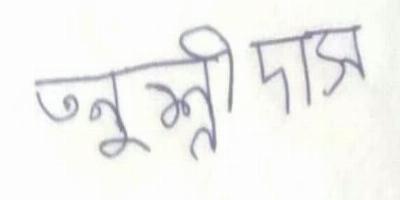 তনুশ্রী দাস